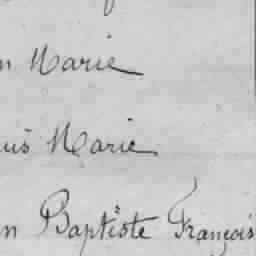 n Marie
uis Marie
n Baptiste François